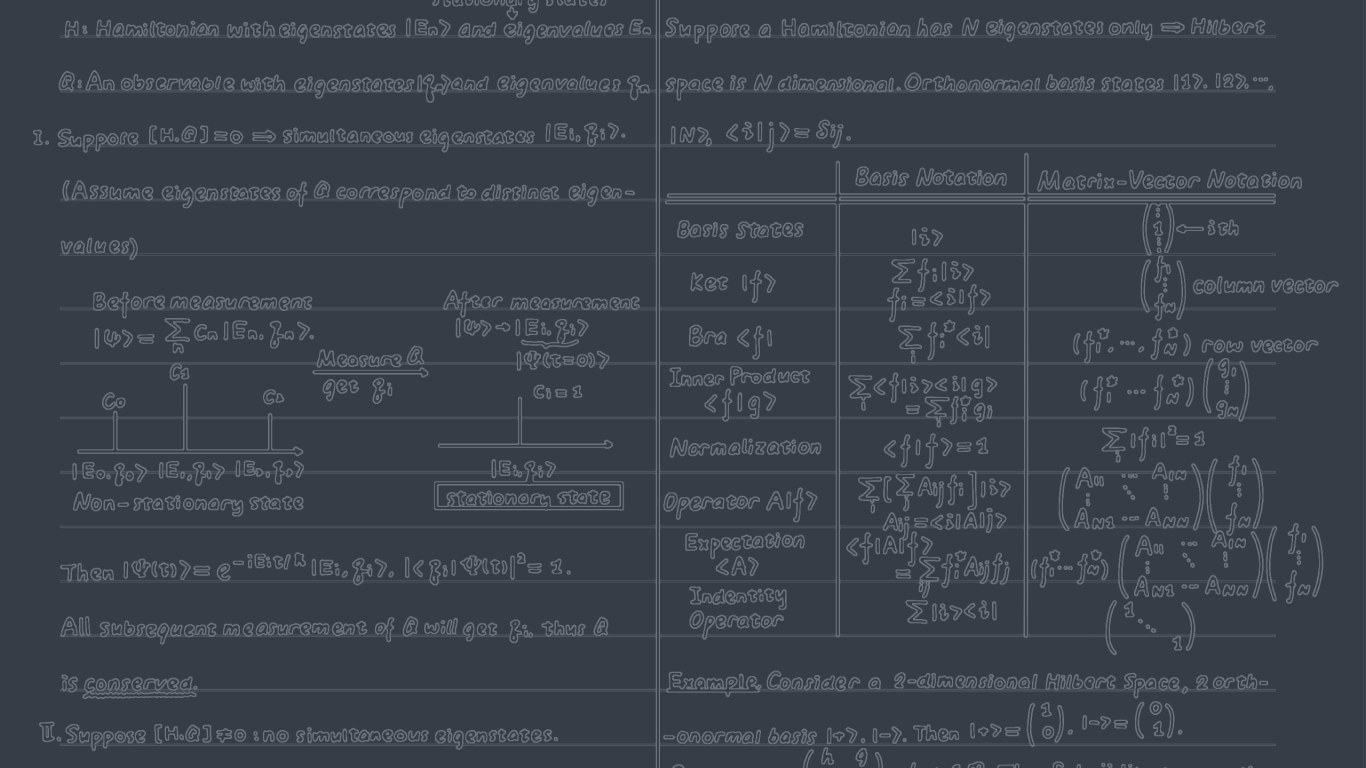 stationary states
H: Hamiltonian with eigenstates |En> and eigenvalues En
Q: An observable with eigenstates |qn> and eigenvalues qn
I. Suppose [H.Q]=0 ⇒ simultaneous eigenstates |Ei,qi>.
(Assume eigenstates of Q correspond to distinct eigen-
values)
Before measurement
|ψ> = Σn Cn |En, qn>.
Measure Q
get qi
After measurement
|ψ> → |Ei, qi>
|Ψ(t=0)>
C0 C1 C2
Ci = 1
|E0,q0> |E1,q1> |E2,q2>
|Ei,qi>
Non-stationary state
stationary state
Then |Ψ(t)> = e^-iEit/ħ |Ei, qi>, |<qi|Ψ(t)|² = 1.
All subsequent measurement of Q will get qi, thus Q
is conserved.
II. Suppose [H.Q]≠0 : no simultaneous eigenstates.
Suppose a Hamiltonian has N eigenstates only ⇒ Hilbert
space is N dimensional. Orthonormal basis states |1>. |2>. ...,
|N>, <i|j> = δij.
Basis Notation Matrix-Vector Notation
Basis States |i> (⋮ 1 ⋮) ← ith
Ket |f> Σ fi|i> fi=<i|f> (f1 ⋮ fN) column vector
Bra <f| Σi fi*<i| (f1*, ..., fN*) row vector
Inner Product <f|g> Σi <f|i><i|g> = Σi fi*gi (f1* ... fN*) (g1 ⋮ gN)
Normalization <f|f>=1 Σi |fi|²=1
Operator A|f> Σi[Σj Aij fj]|i> Aij=<i|A|j> (A11 ... A1N ⋮ ⋱ ⋮ AN1 ... ANN) (f1 ⋮ fN)
Expectation <A> <f|A|f> = Σij fi*Aijfj (f1* ... fN*) (A11 ... A1N ⋮ ⋱ ⋮ AN1 ... ANN) (f1 ⋮ fN)
Indentity Operator Σ|i><i| (1 ⋱ 1)
Example. Consider a 2-dimensional Hilbert Space, 2 orth-
-onormal basis |+>. |->. Then |+> = (1 0), |-> = (0 1).